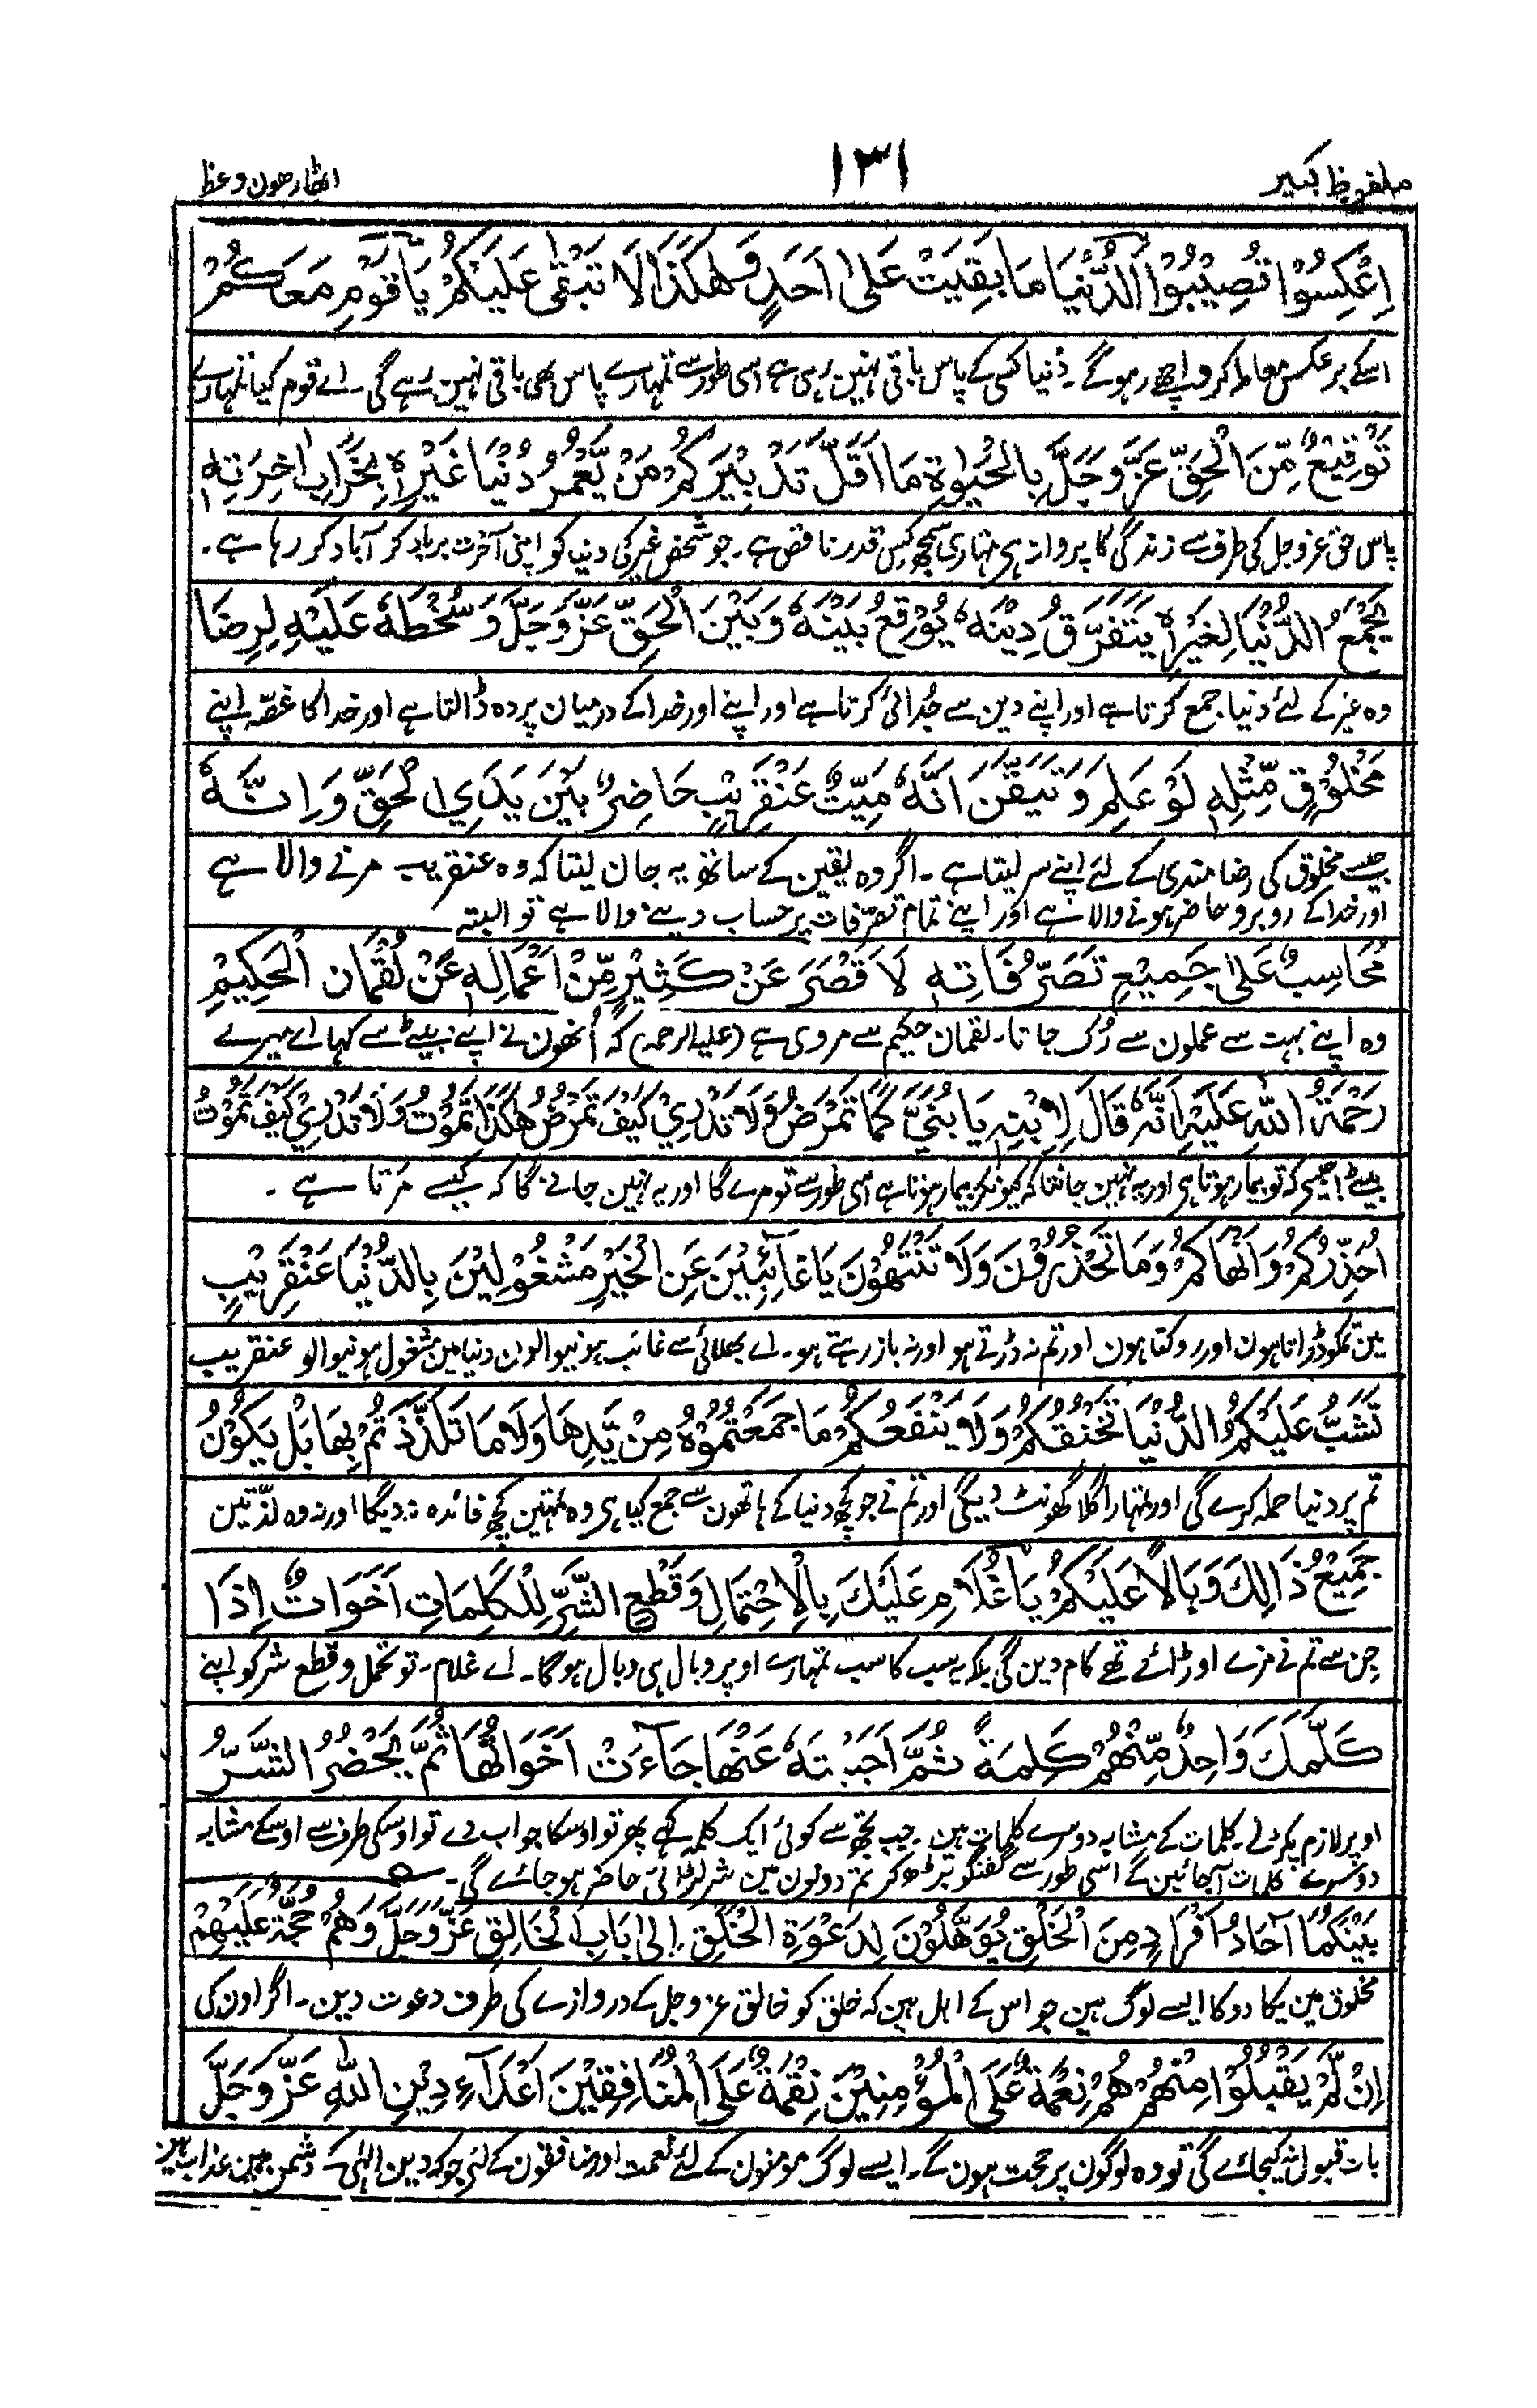 ملفوظ کبیر
۱۳۱
اٹھارھون وعظ
اِعْكِسُوْا تُصِيْبُوْا اَلدُّنْيَا مَا بَقِيَتْ عَلٰى اَحَدٍ وَهٰكَذَا لَا تَبْقٰى عَلَيْكُمْ يَا قَوْمِ مَعَاكُمْ
اسکے برعکس معاملہ کرو اچھے رہوگے۔ دُنیا کسی کے پاس باقی نہین رہی ہے اسی طور سے تمہارے پاس بھی باقی نہین رہے گی۔ اے قوم کیا تمہارے
تَوْقِيْعٌ مِّنَ الْحَقِّ عَزَّ وَجَلَّ بِالْحَيٰوةِ مَا اَقَلَّ تَدْبِيْرَكُمْ مَنْ يَّعْمُرُ دُنْيَا غَيْرِهٖ بِخَرَابِ اٰخِرَتِهٖ
پاس حق عز و جل کی طرف سے زندگی کا پروانہ ہی تمہاری سمجھ کس قدر ناقص ہے۔ جو شخص غیر کی دنیا کو اپنی آخرت برباد کر آباد کر رہا ہے۔
يَجْمَعُ الدُّنْيَا لِغَيْرِهٖ يَتَفَرَّقُ دِيْنَهٗ يُوْقِعُ بَيْنَهٗ وَبَيْنَ الْحَقِّ عَزَّ وَجَلَّ وَسُخْطَهٗ عَلَيْهِ لِرِضَا
وہ غیر کے لئے دنیا جمع کرتا ہے اور اپنے دین سے جُدائی کرتا ہے اور اپنے اور خدا کے درمیان پردہ ڈالتا ہے اور خدا کا غصّہ اپنے
مَخْلُوْقٍ مِّثْلِهٖ لَوْ عَلِمَ وَتَيَقَّنَ اَنَّهٗ مَيِّتٌ عَنْقَرِيْبٍ حَاضِرٌ بَيْنَ يَدَيِ الْحَقِّ وَاِنَّهٗ
جیسے مخلوق کی رضامندی کے لئے اپنے سر لیتا ہے۔ اگر وہ یقین کے ساتھ یہ جان لیتا کہ وہ عنقریب مرنے والا ہے
اور خدا کے روبرو حاضر ہونے والا ہے اور اپنے تمام تصرّفات پر حساب دینے والا ہے تو البتہ
مُحَاسِبٌ عَلٰى جَمِيْعِ تَصَرُّفَاتِهٖ لَاَقْصَرَ عَنْ كَثِيْرٍ مِّنْ اَعْمَالِهٖ عَنْ لُقْمَانَ الْحَكِيْمِ
وہ اپنے بہت سے عملون سے رُک جاتا۔ لقمان حکیم سے مروی ہے (علیہ الرحمہ) کہ اُنھون نے اپنے بیٹے سے کہا اے میرے
رَحْمَةُ اللّٰهِ عَلَيْهِ اَنَّهٗ قَالَ لِابْنِهٖ يَا بُنَيَّ كَمَا تَمْرَضُ وَلَا تَدْرِيْ كَيْفَ تَمْرَضُ هٰكَذَا تَمُوْتُ وَلَا تَدْرِيْ كَيْفَ تَمُوْتُ
بیٹے! جیسی کہ تو بیمار ہوتا ہی اور یہ نہین جانتا کہ کیونکر بیمار ہوتا ہے اسی طور سے تو مرے گا اور یہ نہین جانے گا کہ کیسے مرتا ہے۔
اُحَذِّرُكُمْ وَاَنْهَاكُمْ وَمَا تَحْذَرُوْنَ وَلَا تَنْتَهُوْنَ يَا غَآئِبِيْنَ عَنِ الْخَيْرِ مَشْغُوْلِيْنَ بِالدُّنْيَا عَنْقَرِيْبٍ
مین تمکو ڈراتا ہون اور روکتا ہون اور تم نہ ڈرتے ہو اور نہ باز رہتے ہو۔ اے بھلائی سے غائب ہونیوالون دنیا مین مشغول ہونیوالو عنقریب
تَشَبُّ عَلَيْكُمُ الدُّنْيَا تَخْنُقُكُمْ وَلَا يَنْفَعُكُمْ مَا جَمَعْتُمُوْهُ مِنْ يَّدِهَا وَلَا مَا تَلَذَّذْتُمْ بِهَا بَلْ يَكُوْنُ
تم پر دنیا حملہ کرے گی اور تمہارا گلا گھونٹ دیگی اور تم نے جو کچھ دنیا کے ہاتھون سے جمع کیا ہی وہ تمہین کچھ فائدہ نہ دیگا اور نہ وہ لذّتین
جَمِيْعُ ذَالِكَ وَبَالًا عَلَيْكُمْ يَا غُلَامِ عَلَيْكَ بِالْاِحْتِمَالِ وَقَطْعِ الشَّرِّ لِلْكَلِمَاتِ اَخَوَاتٌ اِذَا
جن سے تم نے مزے اوڑائے تھے کام دین گی بلکہ یہ سب کا سب تمہارے اوپر وبال ہی وبال ہوگا۔ اے غلام۔ تو تحمل و قطع شر کو اپنے
كَلَّمَكَ وَاحِدٌ مِّنْهُمْ كَلِمَةً ثُمَّ اَجَبْتَهٗ عَنْهَا جَآءَتْ اَخَوَاتُهَا ثُمَّ يَحْضُرُ الشَّرُّ
اوپر لازم پکڑلے۔ کلمات کے مشابہ دوسرے کلمات ہین۔ جب تجھ سے کوئی ایک کلمہ کہے پھر تو اوسکا جواب دے تو اوسکی طرف سے اوسکے مشابہ
دوسرے کلمات آجائین گے اسی طور سے گفتگو بڑھ کر تم دونون مین شر لڑائی حاضر ہو جائے گی۔
بَيْنَكُمَا اٰحَادٌ اَفْرَادٍ مِنَ الْخَلْقِ يُوَهَّلُوْنَ لِدَعْوَةِ الْخَلْقِ اِلٰى بَابِ الْخَالِقِ عَزَّ وَجَلَّ وَهُمْ حُجَّةٌ عَلَيْهِمْ
مخلوق مین یکا دوکا ایسے لوگ ہین جو اس کے اہل ہین کہ خلق کو خالق عز و جل کے دروازے کی طرف دعوت دین۔ اگر اون کی
اِنْ لَّمْ يَقْبَلُوْا مِنْهُمْ هُمْ نِعْمَةٌ عَلَى الْمُؤْمِنِيْنَ نِقْمَةٌ عَلَى الْمُنَافِقِيْنَ اَعْدَآءِ دِيْنِ اللّٰهِ عَزَّ وَجَلَّ
بات قبول نہ کیجائے گی تو وہ لوگون پر حجت ہون گے۔ ایسے لوگ مومنون کے لئے نعمت اور منافقون کے لئی جو کہ دین الٰہی کے دشمن ہین عذاب ہین